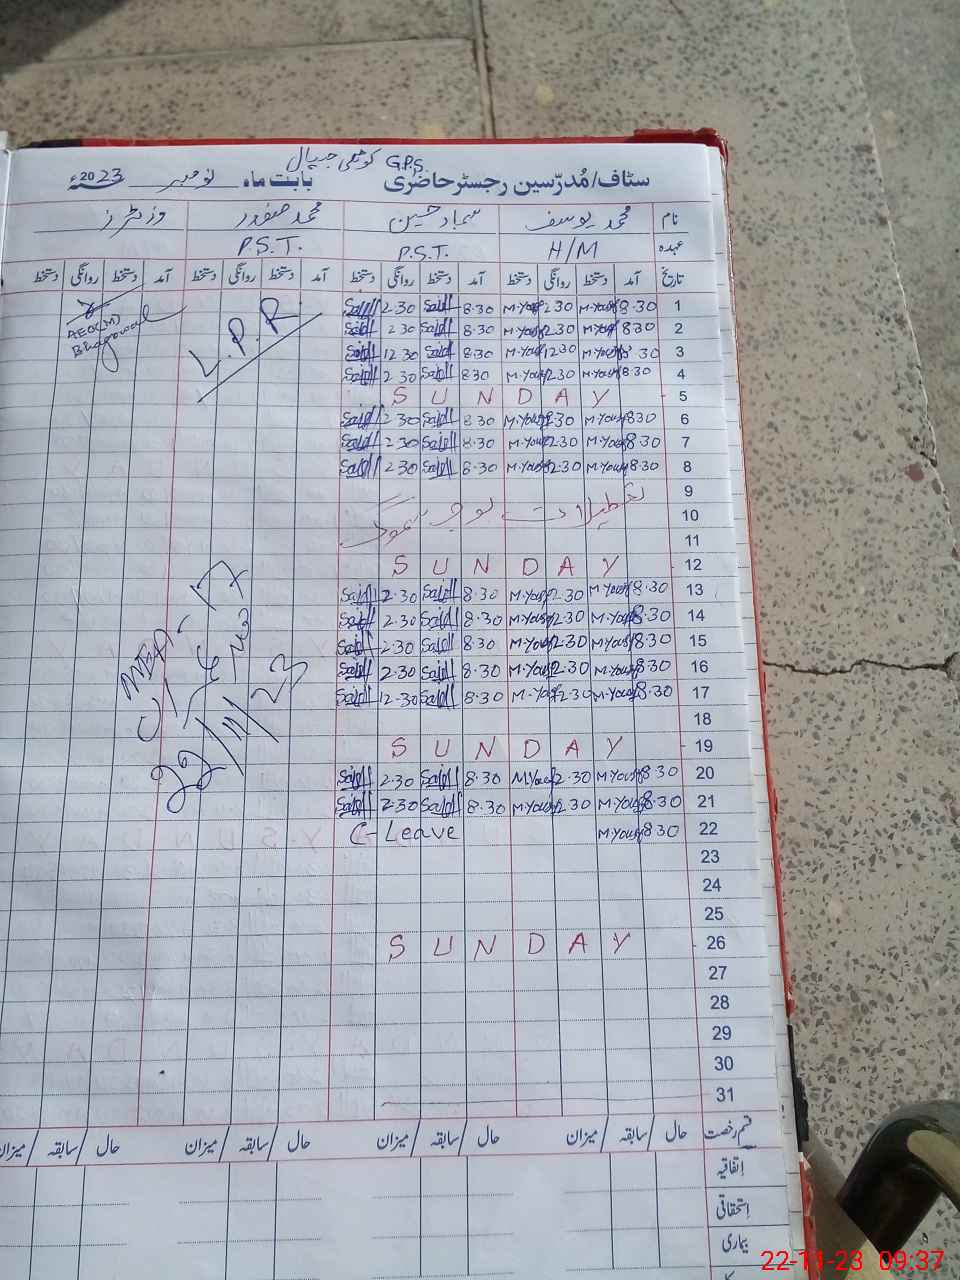 G.P.S. کوٹھی جیپال
سٹاف/مُدرّسین رجسٹر حاضری بابت ماہ نومبر 2023ء
نام محمد یوسف سجاد حسین محمد صفدر وزیٹرز
عہدہ H/M P.S.T. P.S.T.
تاریخ آمد دستخط روانگی دستخط آمد دستخط روانگی دستخط آمد دستخط روانگی دستخط آمد دستخط روانگی دستخط
1 8.30 M.Yousf 2.30 M.Yousf 8.30 Sajid 2.30 Sajid L.P.R. AEO(M)
2 8.30 M.Yousf 2.30 M.Yousf 8.30 Sajid 2.30 Sajid Bhagowal
3 8.30 M.Yousf 12.30 M.Yousf 8.30 Sajid 12.30 Sajid
4 8.30 M.Yousf 2.30 M.Yousf 8.30 Sajid 2.30 Sajid
5 SUNDAY
6 8.30 M.Yousf 2.30 M.Yousf 8.30 Sajid 2.30 Sajid
7 8.30 M.Yousf 2.30 M.Yousf 8.30 Sajid 2.30 Sajid
8 8.30 M.Yousf 2.30 M.Yousf 8.30 Sajid 2.30 Sajid
9
10 تعطیلات بوجہ سموگ
11
12 SUNDAY
13 8.30 M.Yousf 2.30 M.Yousf 8.30 Sajid 2.30 Sajid
14 8.30 M.Yousf 2.30 M.Yousf 8.30 Sajid 2.30 Sajid
15 8.30 M.Yousf 2.30 M.Yousf 8.30 Sajid 2.30 Sajid
16 8.30 M.Yousf 2.30 M.Yousf 8.30 Sajid 2.30 Sajid
17 8.30 M.Yousf 2.30 M.Yousf 8.30 Sajid 12.30 Sajid
18
19 SUNDAY
20 8.30 M.Yousf 2.30 M.Yousf 8.30 Sajid 2.30 Sajid
21 8.30 M.Yousf 2.30 M.Yousf 8.30 Sajid 2.30 Sajid
22 8.30 M.Yousf C-Leave
MEA-17
22/11/23
23
24
25
26 SUNDAY
27
28
29
30
31
قسم رخصت حال / سابقہ / میزان حال / سابقہ / میزان حال / سابقہ / میزان حال / سابقہ / میزان
اتفاقیہ
استحقاقی
بیماری
22-11-23 09:37